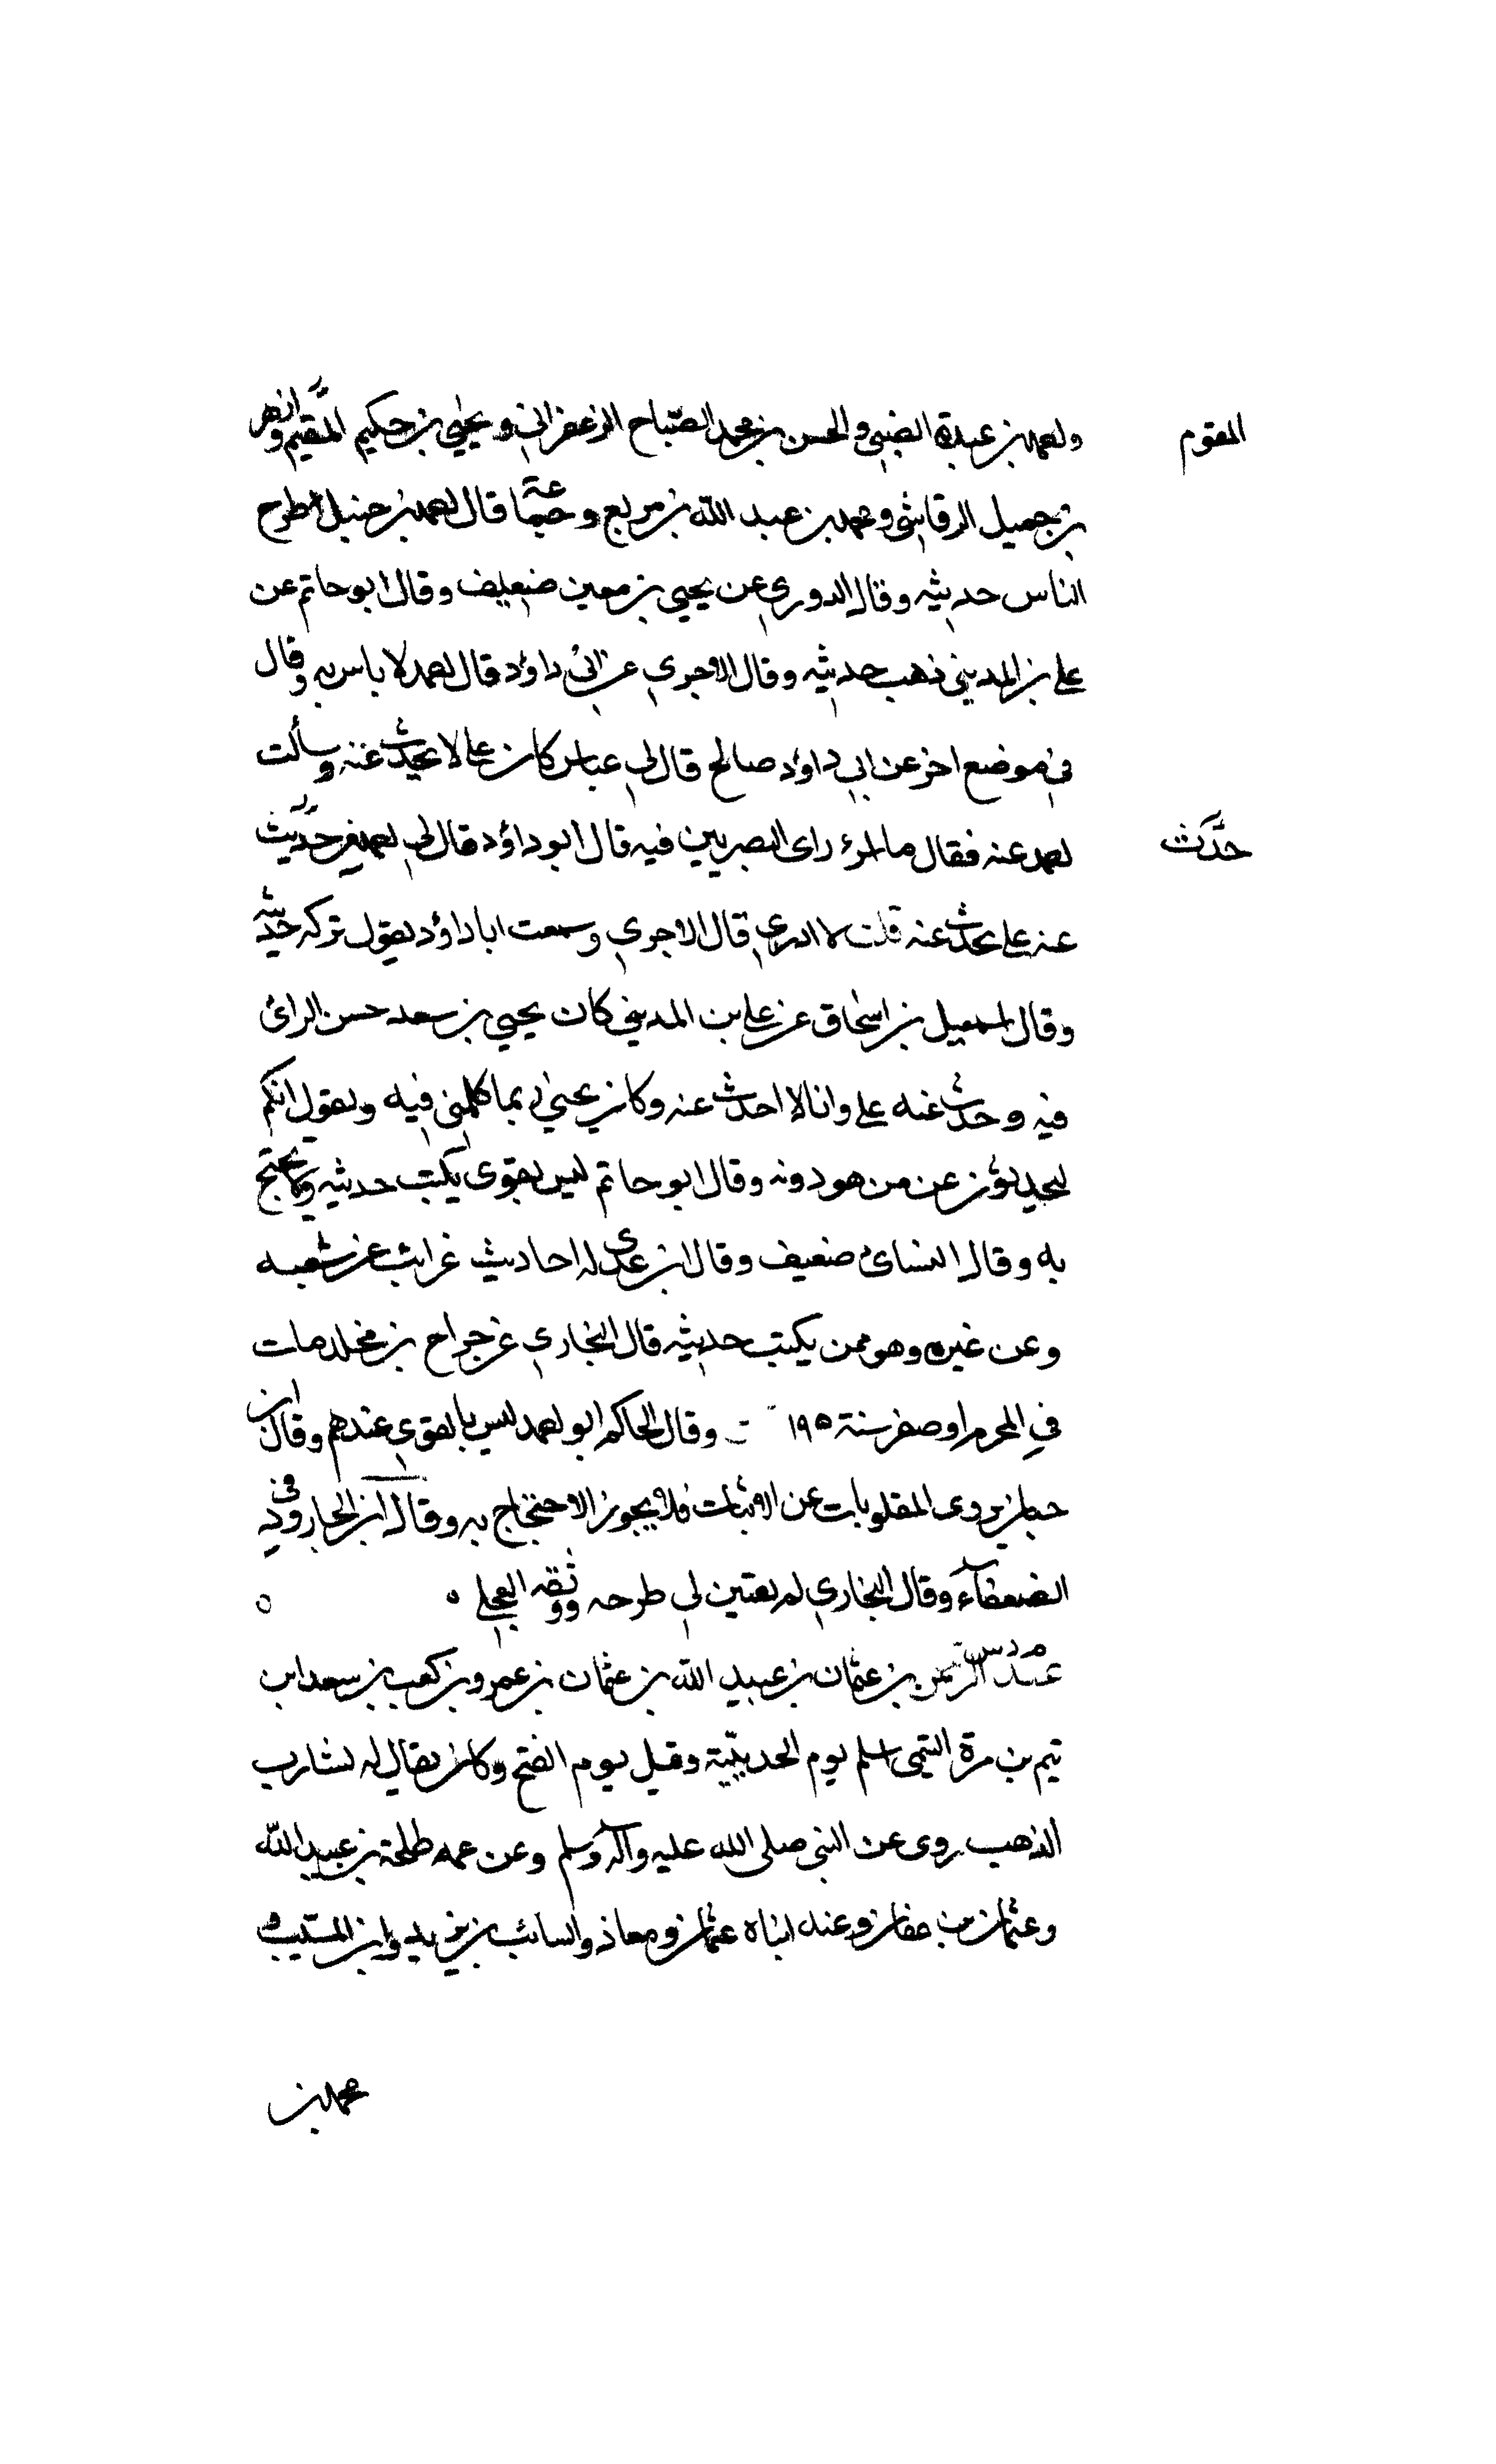 واحمد بن عبدة الضبي والحسن بن محمد الصباح الزعفراني ويحيى بن حكيم المقيم وازهر
المقوم
بن جميل الرقاشي ومحمد بن عبد الله بن بزيع وجماعة قال احمد بن حنبل طرح
الناس حديثه وقال الدوري عن يحيى بن معين ضعيف وقال ابو حاتم عن
علي بن المديني ذهب حديثه وقال الاجري عن ابي داؤد قال احمد لا باس به وقال
في موضع اخر عن ابي داؤد صالح قال لي عباس كان علي لا يحدث عنه وسألت
احمد عنه فقال ما اسوء راى البصريين فيه قال ابو داؤد قال لي احمد بن حديث
حدَّث
عنه علي يحدث عنه قلت لا ادري قال الاجري وسمعت ابا داؤد يقول تركه حديثه
وقال اسمعيل بن اسحاق عن علي بن المديني كان يحيى بن سعد حسن الرائ
فيه وحدث عنه علي وانا لا احدث عنه وكان يحيى ربما كلمني فيه ويقول انكم
لتحدثون عن من هو دونه وقال ابو حاتم ليس بقوى يكتب حديثه ولا يحتج
به وقال النسائ ضعيف وقال ابن عدى له احاديث غرائب عن شعبه
وعن غيره وهو ممن يكتب حديثه قال البخاري عن جراح بن مخلد مات
في المحرم او صفر سنة ١٩٥ وقال الحاكم ابو احمد ليس بالقوي عندهم وقال ابن
حبان يروى المقلوبات عن الاثبات فلا يجوز الاحتجاج به وقال ابن الجارود في
الضعفآء وقال البخاري لم يتبين لي طرحه ووثقه العجلي ٥ ٥
م د س عبد الرحمن بن عثمان بن عبيد الله بن عثمان بن عمرو بن كعب بن سعد ابن
تيم بن مرة التيمي اسلم يوم الحديبية وقيل يوم الفتح وكان يقال له شارب
الذهب روى عن النبي صلى الله عليه وآله وسلم وعن عمه طلحة بن عبيد الله
وعثمان بن عفان وعنه ابناه عثمان ومعاذ والسائب بن يزيد وابن المسيب و
محمد بن